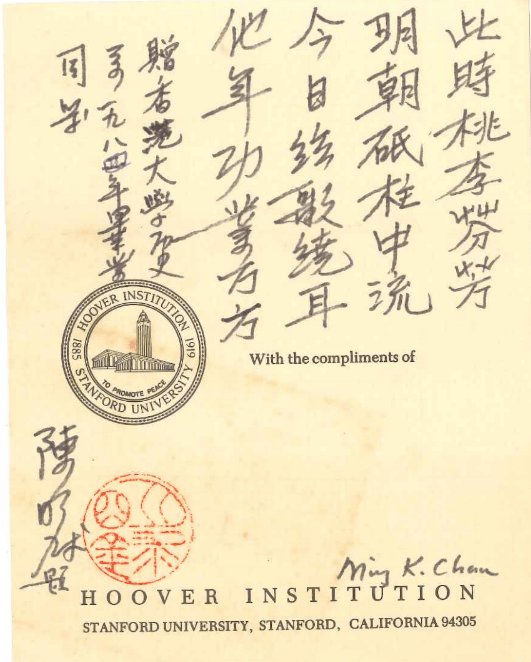 此時桃李芬芳
明朝砥柱中流
今日絃歌繞耳
他年功業方
贈香港大學历史
系一九八四年畢業
同學
HOOVER INSTITUTION
1885 1919
TO PROMOTE PEACE
STANFORD UNIVERSITY
With the compliments of
陳明銶題
Ming K. Chan
HOOVER INSTITUTION
STANFORD UNIVERSITY, STANFORD, CALIFORNIA 94305